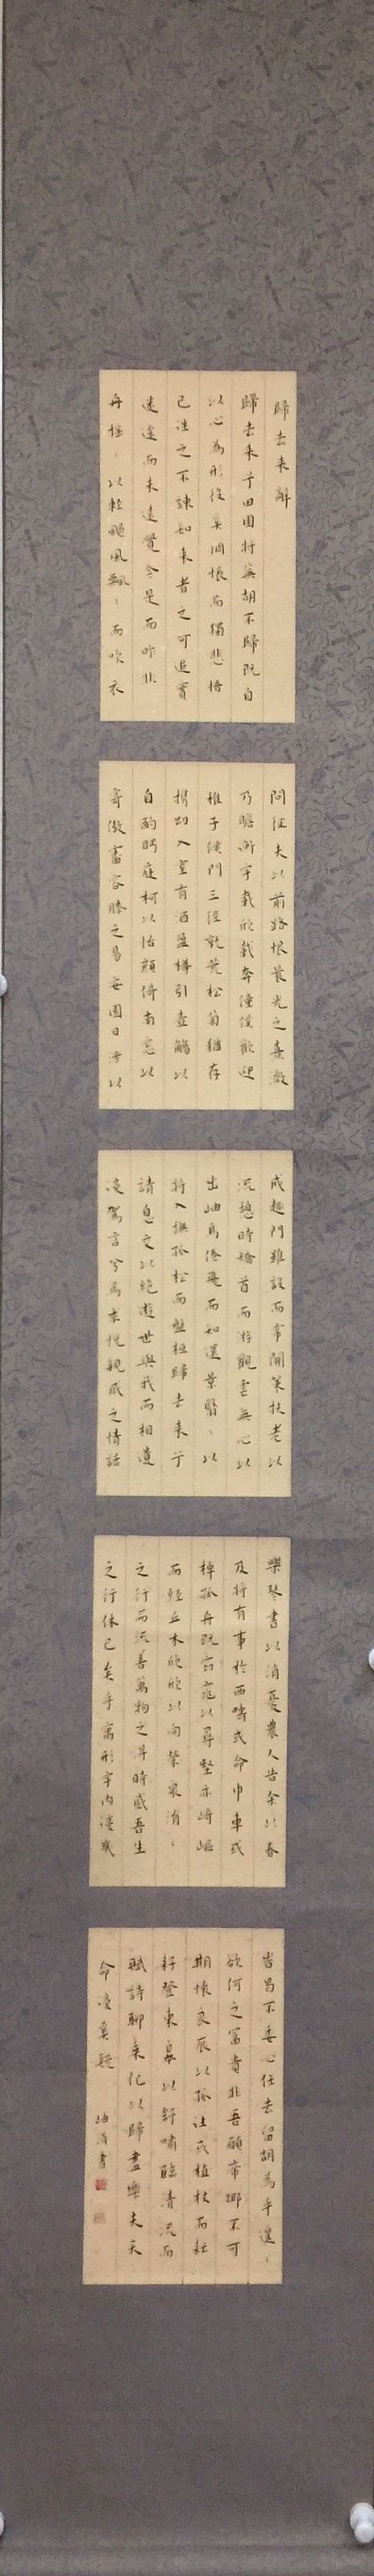 歸去来辭
歸去来兮田園将蕪胡不歸既自
以心為形役奚惆悵而獨悲悟
已往之不諫知来者之可追實
迷途而未遠覺今是而昨非
舟搖〻以輕颺風飄〻而吹衣
問征夫以前路恨晨光之熹微
乃瞻衡宇載欣載奔僮僕歡迎
稚子候門三徑就荒松菊猶存
攜幼入室有酒盈樽引壺觴以
自酌眄庭柯以怡顏倚南窓以
寄傲審容膝之易安園日涉以
成趣門雖設而常關策扶老以
流憩時矯首而游觀雲無心以
出岫鳥倦飛而知還景翳〻以
将入撫孤松而盤桓歸去来兮
請息交以絶遊世與我而相遺
復駕言兮焉求悅親戚之情話
樂琴書以消憂農人告余以春
及将有事於西疇或命巾車或
棹孤舟既窈窕以尋壑亦崎嶇
而經丘木欣欣以向榮泉涓〻
之行而流善萬物之得時感吾生
之行休已矣乎寓形宇内復幾
皆曷不委心任去留胡為乎遑〻
欲何之富貴非吾願帝鄉不可
期懷良辰以孤往或植杖而耘
耔登東皋以舒嘯臨清流而
賦詩聊乘化以歸盡樂夫天
命復奚疑